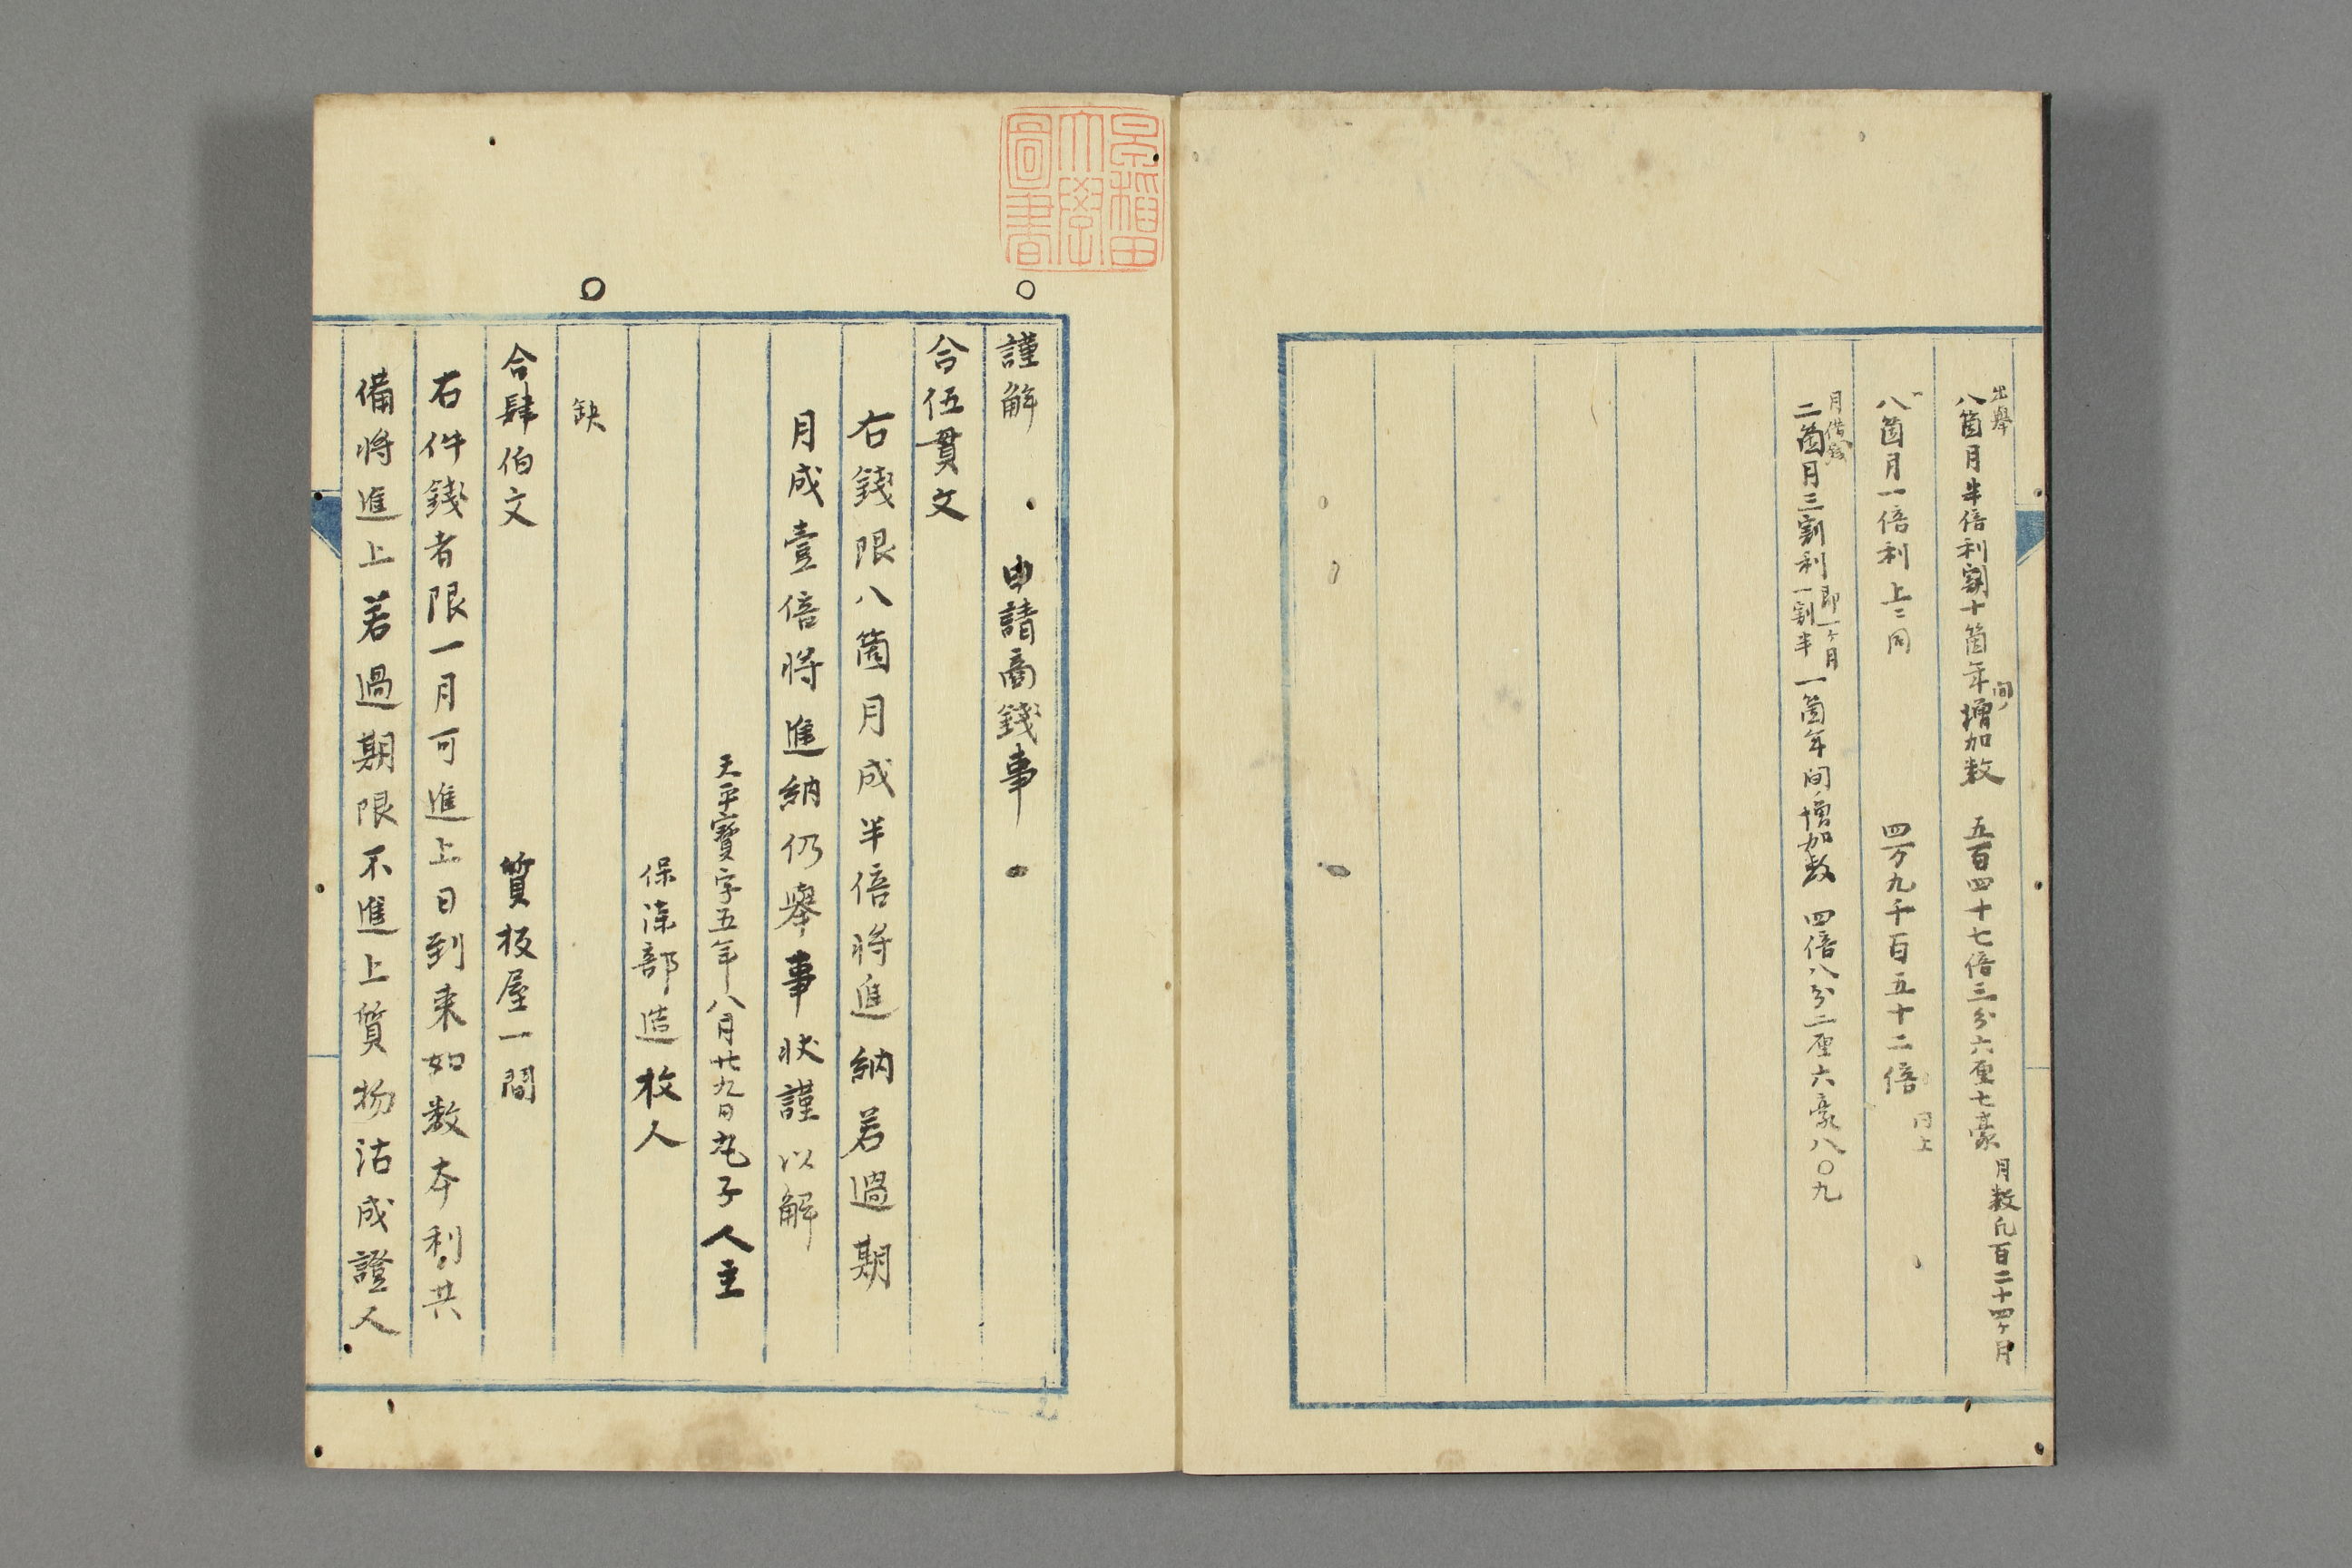 出擧
八箇月半倍利割十箇年間ノ増加数 五百四十七倍三分六厘七豪 月数凡百二十四ヶ月
八箇月一倍利 上ニ同 四万九千百五十二倍 同上
月借銭
二箇月三割利 即一ヶ月一割半 一箇年间ノ増加数 四倍八分二厘六豪八〇九
早稲田大學圖書
○
謹解 申請商錢事
合伍貫文
右錢限八箇月成半倍将進納若過期
月成壹倍将進納仍擧事状謹以解
天平寶字五年八月廿九日 丸子人主
保漆部造枚人
○
缺
合肆伯文 質板屋一間
右件錢者限一月可進上日到来如数本利共
備将進上若過期限不進上質物沽成證人